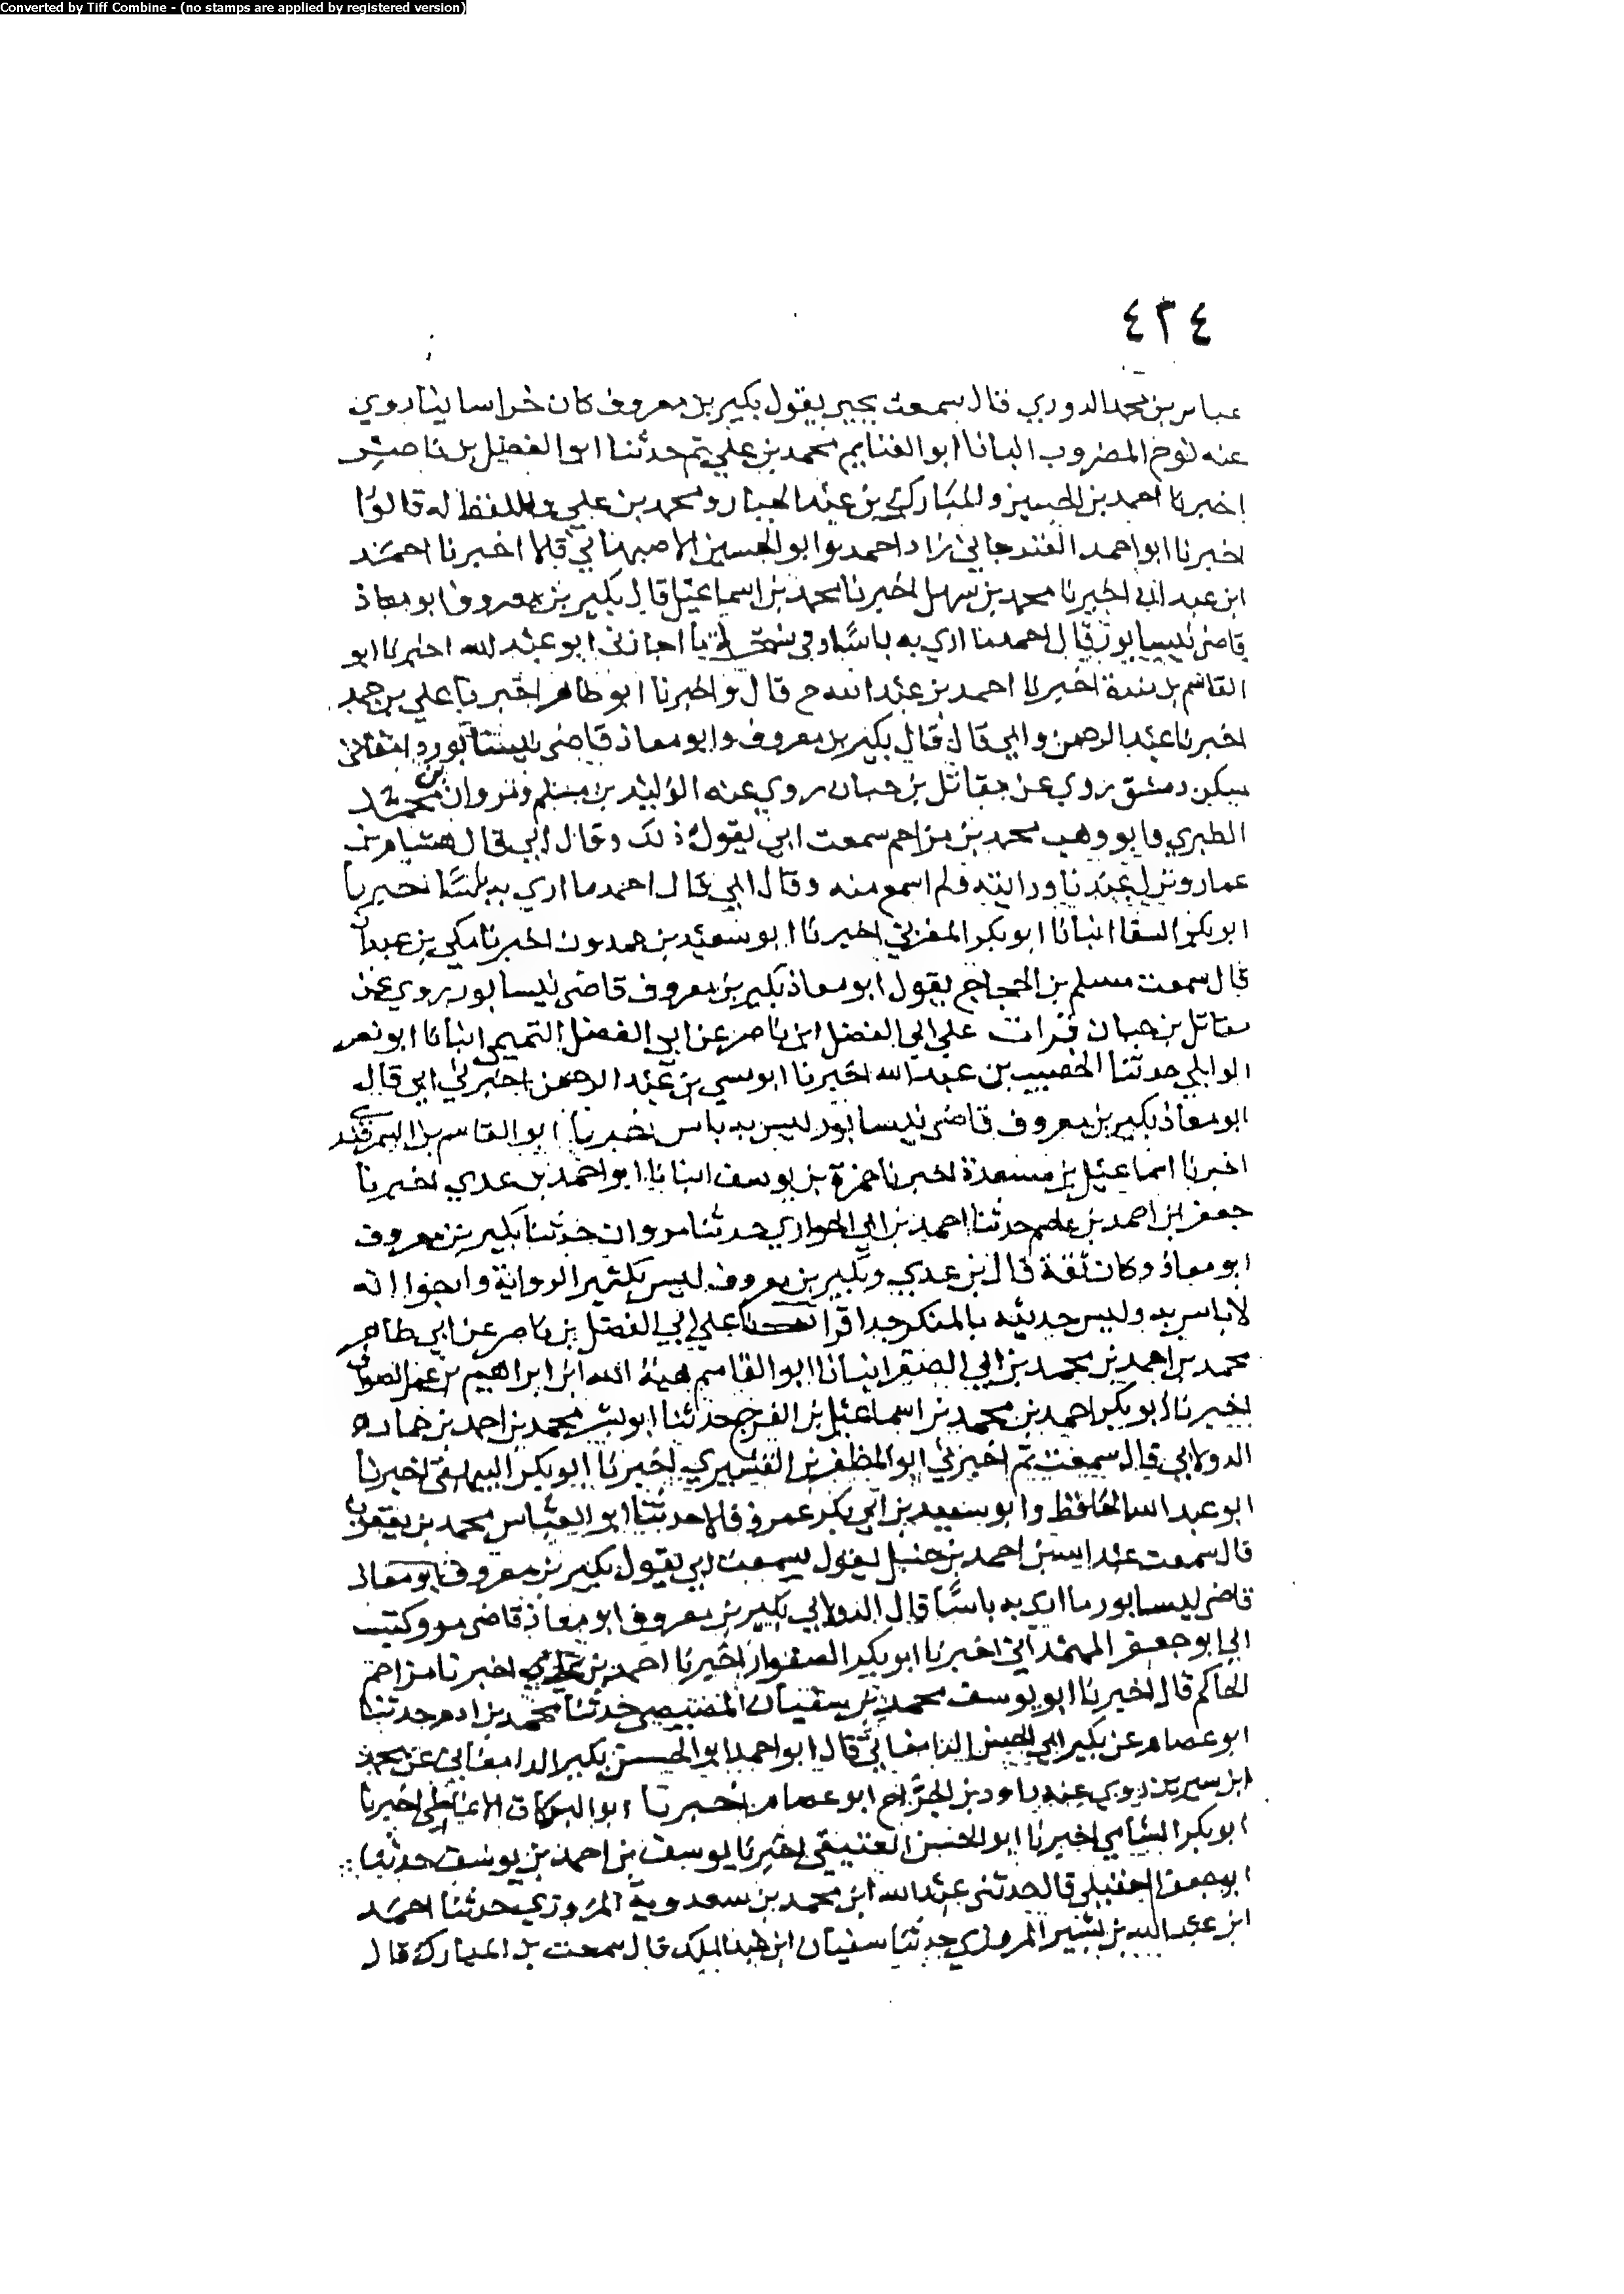 Converted by Tiff Combine - (no stamps are applied by registered version)
٤٢٤
عباس بن محمد الدوري قال سمعت يحيى يقول بكير بن معروف كان خراسانيا روي
عنه نوح المضروب انبانا ابو الغنايم محمد بن علي ثم حدثنا ابو الفضل بن ناصر
اخبرنا احمد بن الحسين والمبارك بن عبد الجبار ومحمد بن علي واللفظ له قالوا
اخبرنا ابو احمد الغندجاني زاد احمد وابو الحسين الاصبهاني قالا اخبرنا احمد
ابن عبدان اخبرنا محمد بن سهل اخبرنا محمد بن اسماعيل قال بكير بن معروف ابو معاذ
قاضي نيسابور قال احمد ما اري به باسا وفي اجازني ابو عبد الله اخبرنا ابو
القاسم بن مندة اخبرنا احمد بن عبد الله ح قال واخبرنا ابو طاهر اخبرنا علي بن محمد
اخبرنا عبد الرحمن وابي قال قال بكير بن معروف وابو معاذ قاضي نيسابور دامغاني
سكن دمشق روي عن مقاتل بن حيان روي عنه الوليد بن مسلم ومروان بن محمد
الطبري وابو وهب محمد بن مزاحم سمعت ابي يقول ذلك وقال ابي قال هشام بن
عمار ونزل عندنا ورايته ولم اسمع منه وقال ابي قال احمد ما اري به باسا اخبرنا
ابو بكر السقا انبانا ابو بكر المغربي اخبرنا ابو سعيد بن حمدون اخبرنا مكي بن عبدان
قال سمعت مسلم بن الحجاج يقول ابو معاذ بكير بن معروف قاضي نيسابور روي عن
مقاتل بن حيان قرات علي ابي الفضل ابن ناصر عن ابي الفضل التميمي انبانا ابو نصر
الوايلي حدثنا الخصيب بن عبد الله اخبرنا ابو موسي بن عبد الرحمن اخبرني ابي قال
ابو معاذ بكير بن معروف قاضي نيسابور ليس به باس اخبرنا ابو القاسم بن السمرقندي
اخبرنا اسماعيل بن مسعدة اخبرنا حمزة بن يوسف انبانا ابو احمد بن عدي اخبرنا
جعفر بن احمد بن عاصم حدثنا احمد بن ابي الحواري حدثنا مروان حدثنا بكير بن معروف
ابو معاذ وكان ثقة قال بن عدي وبكير بن معروف ليس بكثير الرواية وارجوا انه
لا باس به وليس حديثه بالمنكر جدا قرات علي ابي الفضل بن ناصر عن ابي طاهر
محمد بن احمد بن محمد بن ابي الصقر انبانا ابو القاسم هبة الله ابن ابراهيم بن عمر الصواف
اخبرنا ابو بكر احمد بن محمد بن اسماعيل بن الفرج حدثنا ابو بشر محمد بن احمد بن حماد
الدولابي قال سمعت ثم اخبرني ابو المظفر بن القشيري اخبرنا ابو بكر البيهقي اخبرنا
ابو عبد الله الحافظ وابو سعيد بن ابي بكر عمرو قالا حدثنا ابو العباس محمد بن يعقوب
قال سمعت عبد الله بن احمد بن حنبل يقول سمعت ابي يقول بكير بن معروف ابو معاذ
قاضي نيسابور ما اري به باسا قال الدولابي بكير بن معروف ابو معاذ قاضي مرو وكتب
الي ابو جعفر الهمداني اخبرنا ابو بكر الصفار اخبرنا احمد بن علي اخبرنا مزاحم
الحاكم قال اخبرنا ابو يوسف محمد بن سفيان المصيصي حدثنا محمد بن ادم حدثنا
ابو عصام عن بكير ابي الحسن الدامغاني قال ابو احمد ابو الحسن بكير الدامغاني عن محمد
ابن سيرين روي عنه داود بن الجراح ابو عصام اخبرنا ابو البركات الانماطي اخبرنا
ابو بكر الشامي اخبرنا ابو الحسن العتيقي اخبرنا يوسف بن احمد بن يوسف حدثنا
ابو جعفر العقيلي قال حدثني عبد الله ابن محمد بن سعدوية المروزي حدثنا احمد
ابن عبد الله بن بشير المروزي حدثنا سفيان ابن عبد الملك قال سمعت بن المبارك قال